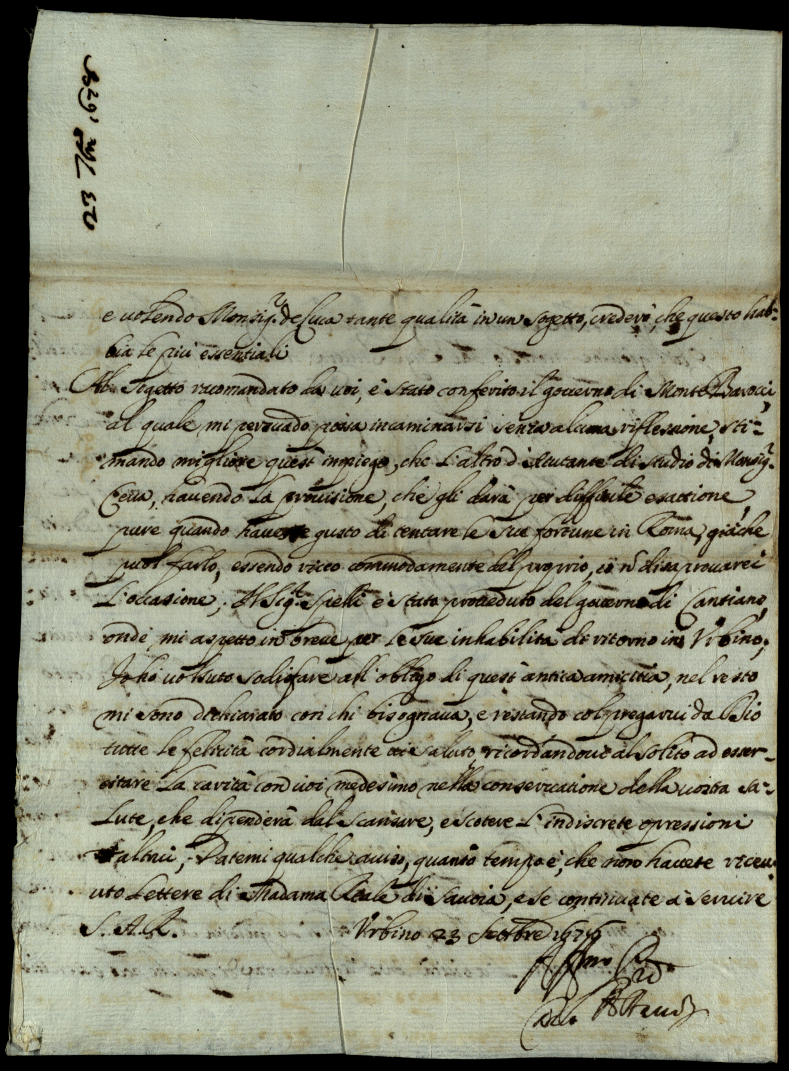 23 7bre 1676
e volendo Monsig.r de Luca tante qualità in un sogetto, crederò, che questo hab=
bia le più essentiali
Al sogetto racomandato da voi, è stato conferito il governo di Monte Barocci,
al quale mi persuado possa incaminarsi senza alcuna riflessione, sti=
mando migliore quest' impiego, che l'altro d'Aiutante di studio di Monsig.r
havendo la provisione, che gli darà per difficile esattione,
pure quando havesse gusto di tentare le sue fortune in Roma, giàche
puol farlo, essendo ricco commodamente del proprio, io n̄ disaprovarei
l'occasione; Al Sig.r Spelli è stato proveduto del governo di Cantiano,
onde mi aspetto in breve per le sue inhabilità di ritorno in Urbino;
Io hò voluto sodisfare all' obligo di quest' antica amicitia, nel resto
mi sono dichiarato con chi bisognava, e restando col pregarvi da Dio
tutte le felicità cordialmente vi saluto ricordandovi al solito ad esser=
citare la carità con voi medesimo nella conservatione della vostra sa=
lute, che dipenderà dal scansare, e scotere l'indiscrete opressioni
altrui; Datemi qualche aviso, quanto tempo è, che non havete ricev=
uto lettere di Madama Reale di Savoia, e se continuate a servire
S. A. R. Urbino 23 Settbre 1676
Aff.mo